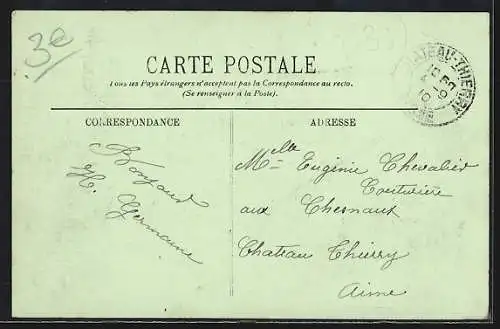 3e
CARTE POSTALE
Tous les Pays étrangers n'acceptent pas la Correspondance au recto.
(Se renseigner à la Poste).
CHATEAU-THIERRY
CORRESPONDANCE
ADRESSE
Bonjour
H. Germaine
Mlle Eugénie Chevalier
Couturière
aux Chesnaux
Chateau Thierry
Aisne